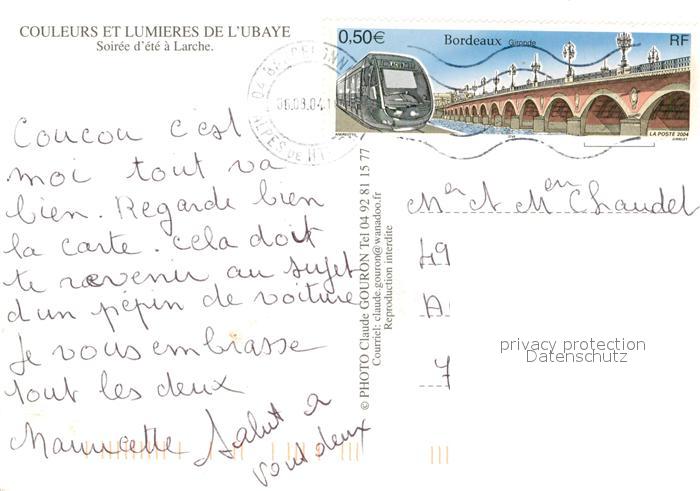 COULEURS ET LUMIERES DE L'UBAYE
Soirée d'été à Larche.
0,50€ Bordeaux Gironde RF
LA POSTE 2004
Coucou c'est
moi tout va
bien. Regarde bien
la carte. cela doit
te revenir au sujet
d'un pépin de voiture
Je vous embrasse
tout les deux
Mauricette Salut a
vout deux
© PHOTO Claude GOURON Tel 04 92 81 15 77
Courriel: claude.gouron@wanadoo.fr
Reproduction interdite
Mr et Mme Chaudel
49
A
7
privacy protection
Datenschutz